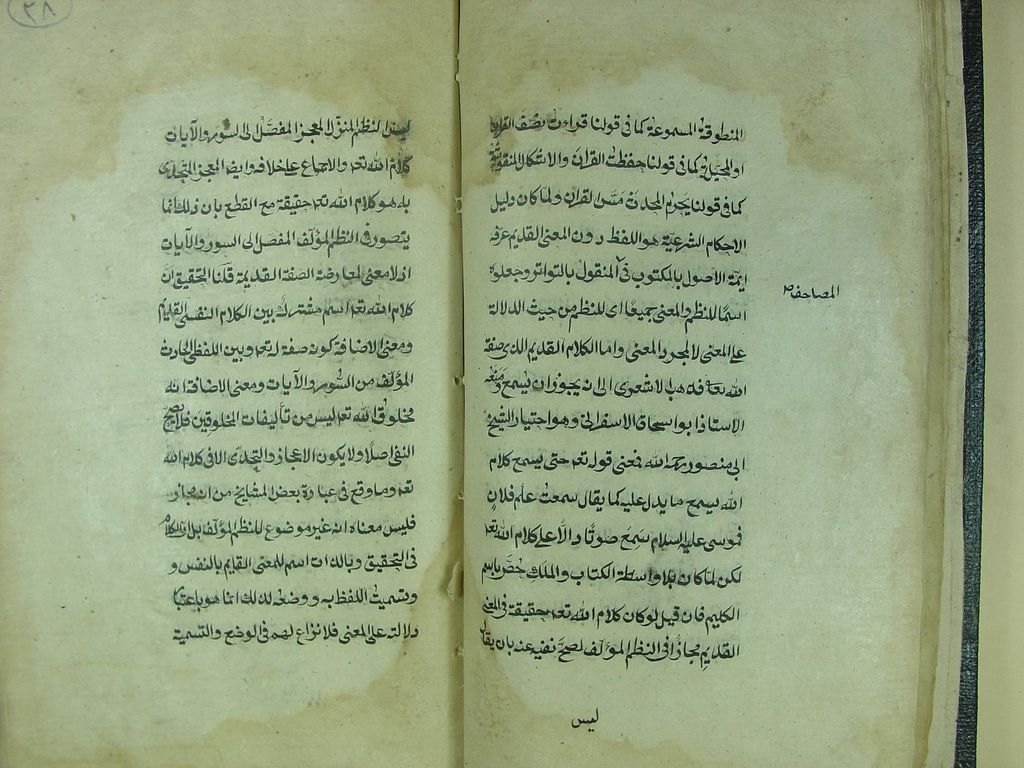 المنطوقة المسموعة كما فى قولنا قرأت نصف القرآن
او المخيلة كما فى قولنا حفظت القرآن والاشكال المنقوشة
كما فى قولنا يحرم للمحدث مس القرآن ولما كان دليل
الاحكام الشرعية هو اللفظ دون المعنى القديم عرفه
ايمة الاصول بالمكتوب فى المنقول بالتواتر وجعلوه
المصاحف
اسمًا للنظم والمعنى جميعًا اى للنظم من حيث الدلالة
على المعنى لا لمجرد المعنى واما الكلام القديم الذى صفة
الله تعا فذهب الاشعرى الى انه يجوز ان يسمع ومنعه
الاستاذ ابو اسحاق الاسفرانى وهو اختيار الشيخ
ابى منصور رحمه الله فمعنى قوله تعم حتى يسمع كلام
الله يسمع ما يدل عليه كما يقال سمعت علم فلان
فموسى عليه السلام سمع صوتًا دالًا على كلام الله تعم
لكن لما كان بلا واسطة الكتاب والملك خص باسم
الكليم فان قيل لو كان كلام الله تعم حقيقة فى المعنى
القديم مجازًا فى النظم المؤلف لصح نفيه عنه بان يقال
ليس
٢٨
ليس النظم المنزل المعجز المفصل الى السور والآيات
كلام الله تعم والاجماع على خلافه وايضا المعجز المتحدى
به هو كلام الله تعم حقيقة مع القطع بان ذلك انما
يتصور فى النظم المؤلف المفصل الى السور والآيات
اذ لا معنى لمعارضة الصفة القديمة قلنا التحقيق ان
كلام الله تعم اسم مشترك بين الكلام النفسى القديم
ومعنى الاضافة كونه صفة له تعم وبين اللفظى الحادث
المؤلف من السور والآيات ومعنى الاضافة انه
مخلوق الله تعم ليس من تأليفات المخلوقين فلا يصح
النفى اصلًا ولا يكون الاعجاز والتحدى الا فى كلام الله
تعم وما وقع فى عبارة بعض المشايخ من انه مجاز
فليس معناه انه غير موضوع للنظم المؤلف بل ان الكلام
فى التحقيق وبالذات اسم للمعنى القايم بالنفس و
وتسميت اللفظ به ووضعه لذلك انما هو باعتبا
دلالته على المعنى فلا نزاع لهم فى الوضع والتسمية